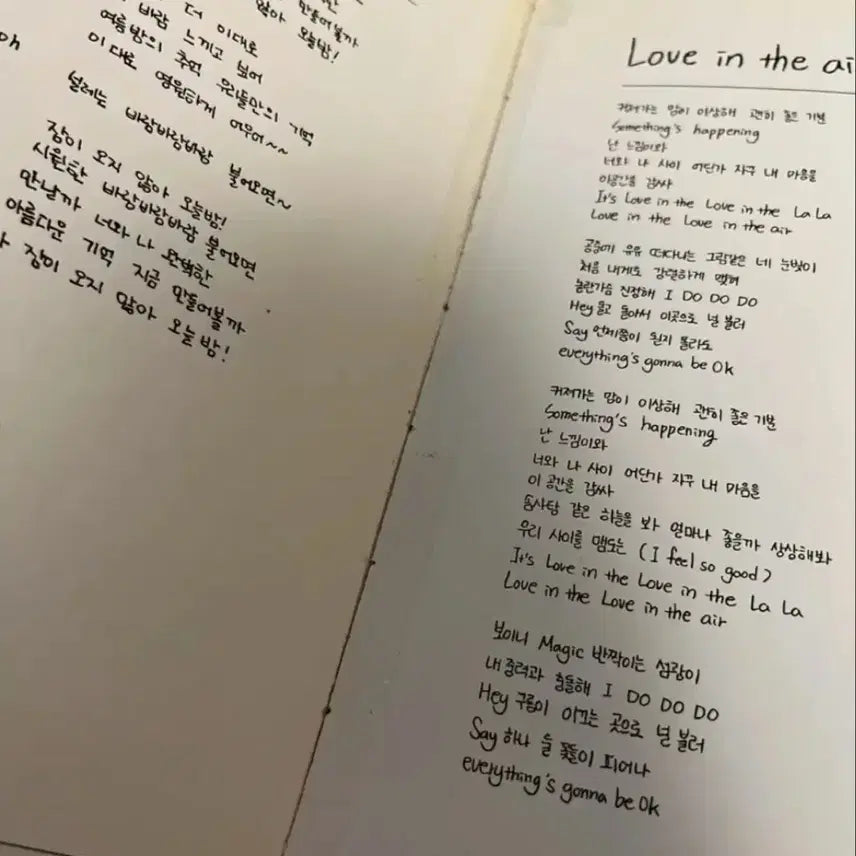 더 이대로
않아 오늘밤!
만들어볼까
바람 느끼고 싶어
여름밤의 추억 우리들만의 기억
이대로 영원하게 어우어~~
설레는 바람바람바람 불어오면~
잠이 오지 않아 오늘밤!
시원한 바람바람바람 불어오면
만날까 너와 나 완벽한
아름다운 기억 지금 만들어볼까
잠이 오지 않아 오늘밤!
Love in the ai
커져가는 맘이 이상해 괜히 좋은 기분
Something's happening
난 느낌이와
너와 나 사이 어딘가 자꾸 내 마음을
이공간을 감싸
It's Love in the Love in the La La
Love in the Love in the air
공중에 유유 떠다니는 그림같은 네 눈빛이
처음 내게도 강렬하게 맺혀
놀란가슴 진정해 I DO DO DO
Hey 돌고 돌아서 이곳으로 널 불러
Say 언제쯤이 될지 몰라도
everything's gonna be Ok
커져가는 맘이 이상해 괜히 좋은 기분
Something's happening
난 느낌이와
너와 나 사이 어딘가 자꾸 내 마음을
이 공간을 감싸
솜사탕 같은 하늘을 봐 얼마나 좋을까 상상해봐
우리 사이를 맴도는 (I feel so good)
It's Love in the Love in the La La
Love in the Love in the air
보이니 Magic 반짝이는 섬광이
내 중력과 충돌해 I DO DO DO
Hey 구름이 이끄는 곳으로 널 불러
Say 하나 둘 꽃들이 피어나
everything's gonna be Ok